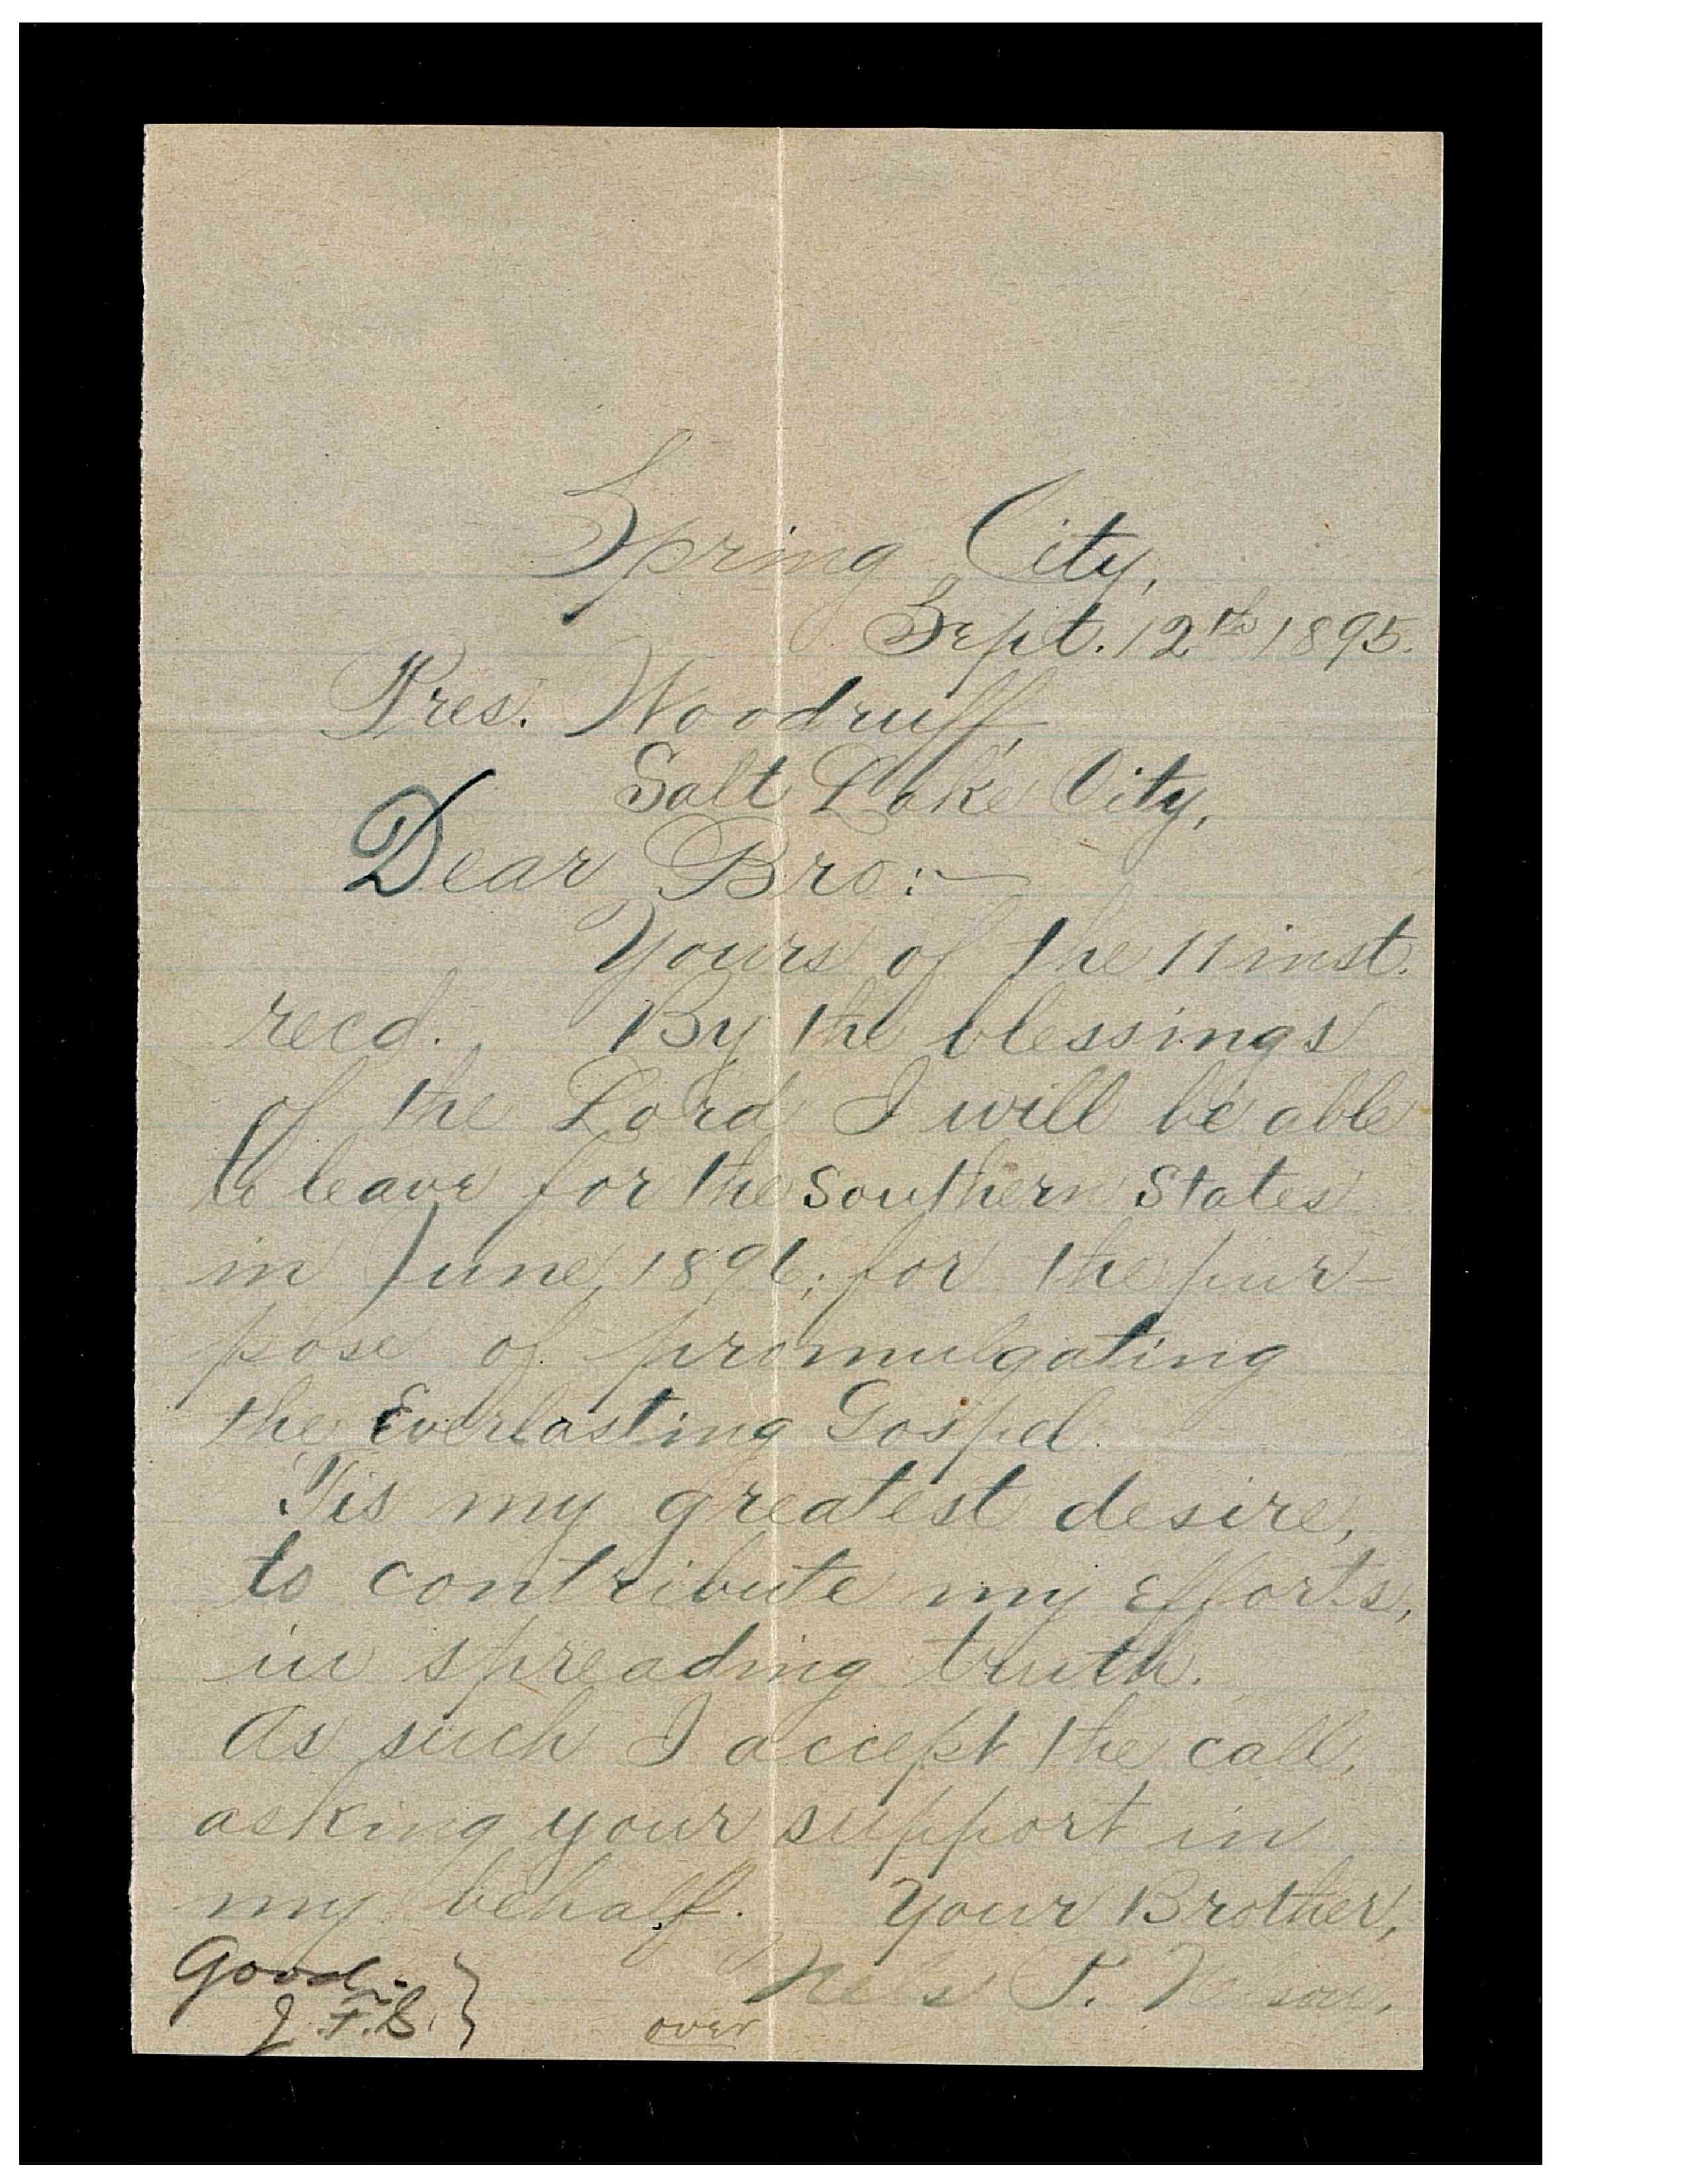 Spring City,
Sept. 12th 1895.
Pres. Woodruff,
Salt Lake City,
Dear Bro:—
Yours of the 11 inst.
recd. By the blessings
of the Lord I will be able
to leave for the Southern States
in June, 1896; for the pur-
pose of promulgating
the Everlasting Gospel.
'Tis my greatest desire,
to contribute my efforts,
in spreading truth.
As such I accept the call,
asking your support in
my behalf. Your Brother,
Nels P. Nelson.
Good.
J. F. S.
over